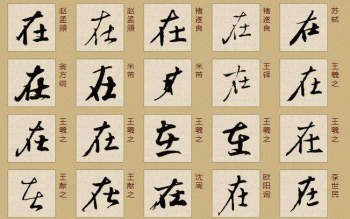 在 赵孟頫 在 赵孟頫 在 褚遂良 在 褚遂良 在 苏轼
在 翁方纲 在 米芾 在 米芾 在 王铎 在 王羲之
在 王羲之 在 王羲之 在 王羲之 在 王羲之 在 王羲之
在 王献之 在 王献之 在 沈阁 在 欧阳询 在 李世民